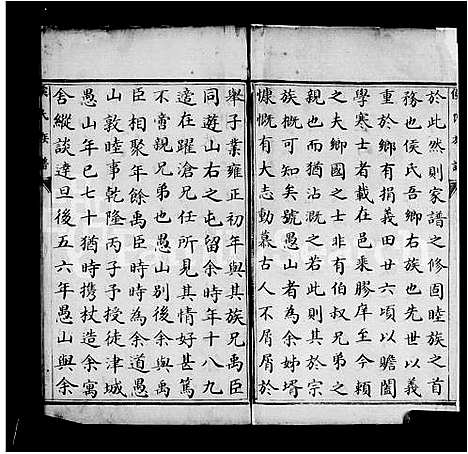 於此然則家譜之修固睦族之首
務也侯氏吾鄉右族也先世以義
重於鄉有捐義田廿六頃以贍闔
學寒士者載在邑乘膠庠至今賴
之夫鄉國之士非有伯叔兄弟之
親也而猶沾溉之若此則其於宗
族概可知矣號愚山者為余姊壻
慷慨有大志動慕古人不屑屑於
舉子業雍正初年與其族兄禹臣
同遊山右之屯留余時年十八九
適在躍滄兄任所見其情好甚篤
不啻親兄弟也愚山別後余與禹
臣相聚年餘禹臣時時為余道愚
山敦睦事乾隆丙子予授徒津城
愚山年已七十猶時携杖造余寓
舍縱談達旦後五六年愚山與余
侯氏族譜